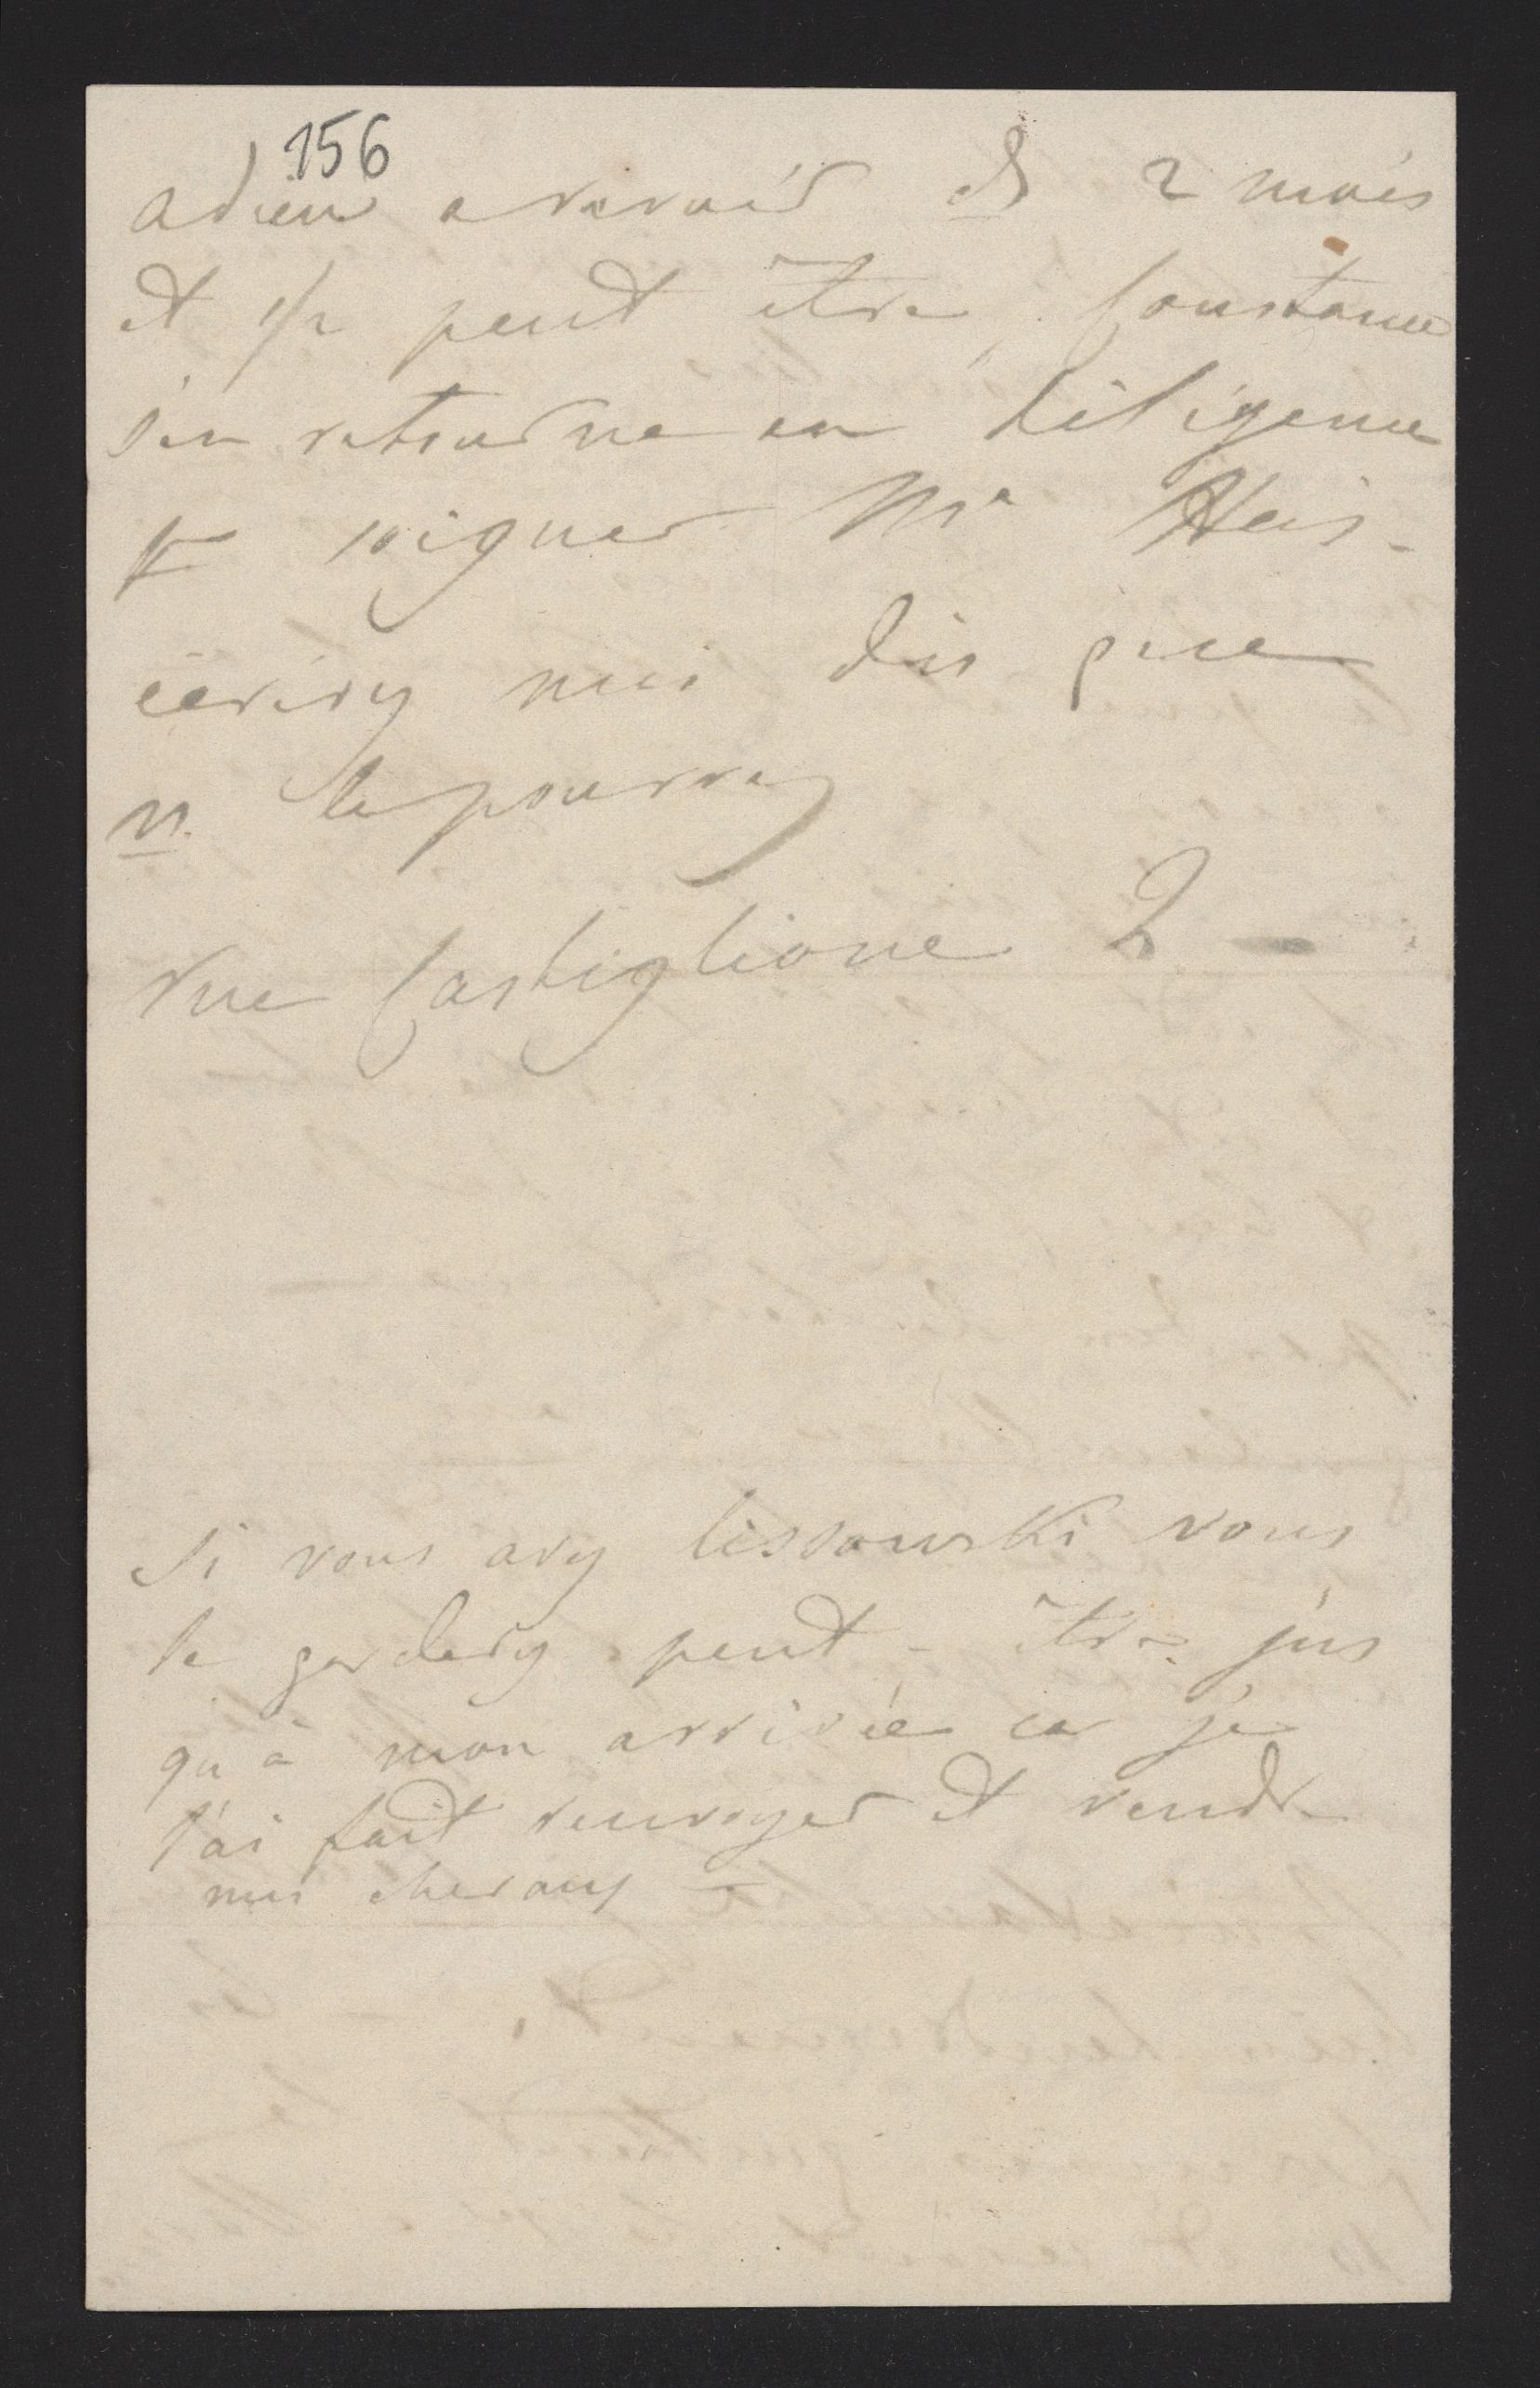 156
adieu a revoir ds 2 mois
et 1/2 peut être, Constance
s'en retourne en diligence
pr soigner Mr
écrivez moi dès que
vs le pourrez
rue Castiglione 2 –
Si vous avez lissowski vous
le garderez peut-être jus
qu'à mon arrivée car je
l'ai fait renvoyer et vendre
mes chevaux –